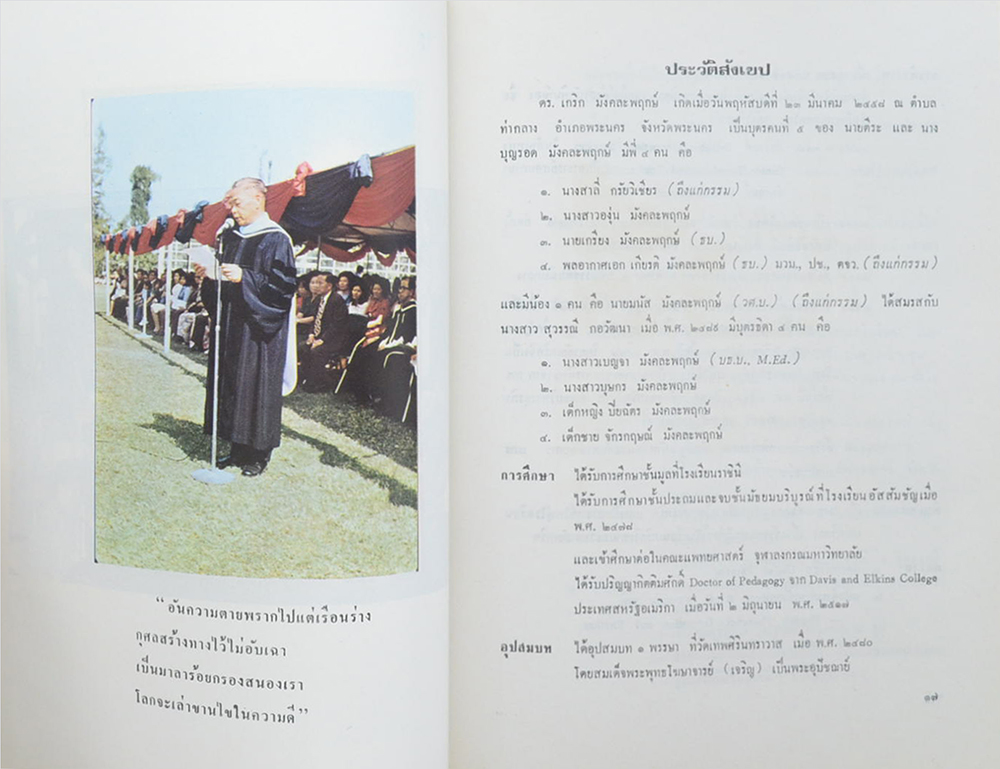 “อันความตายพรากไปแต่เรือนร่าง
กุศลสร้างทางไว้ไม่อับเฉา
เป็นมาลาร้อยกรองสนองเรา
โลกจะเล่าขานไขในความดี”
ประวัติสังเขป
ดร. เกริก มังคละพฤกษ์ เกิดเมื่อวันพฤหัสบดีที่ ๒๓ มีนาคม ๒๔๕๘ ณ ตำบล
ท่ากลาง อำเภอพระนคร จังหวัดพระนคร เป็นบุตรคนที่ ๕ ของ นายตีระ และ นาง
บุญรอด มังคละพฤกษ์ มีพี่ ๔ คน คือ
๑. นางสาลี่ กรัยวิเชียร (ถึงแก่กรรม)
๒. นางสาวองุ่น มังคละพฤกษ์
๓. นายเกรียง มังคละพฤกษ์ (ธบ.)
๔. พลอากาศเอก เกียรติ มังคละพฤกษ์ (ธบ.) มวม., ปช., ตจว. (ถึงแก่กรรม)
และมีน้อง ๑ คน คือ นายมนัส มังคละพฤกษ์ (วศ.บ.) (ถึงแก่กรรม) ได้สมรสกับ
นางสาว สุวรรณี กอวัฒนา เมื่อ พ.ศ. ๒๔๘๙ มีบุตรธิดา ๔ คน คือ
๑. นางสาวเบญจา มังคละพฤกษ์ (บธ.บ., M.Ed.)
๒. นางสาวบุษกร มังคละพฤกษ์
๓. เด็กหญิง ปิยฉัตร มังคละพฤกษ์
๔. เด็กชาย จักรกฤษณ์ มังคละพฤกษ์
การศึกษา ได้รับการศึกษาชั้นมูลที่โรงเรียนราชินี
ได้รับการศึกษาชั้นประถมและจบชั้นมัธยมบริบูรณ์ที่โรงเรียนอัสสัมชัญเมื่อ
พ.ศ. ๒๔๗๗
และเข้าศึกษาต่อในคณะแพทยศาสตร์ จุฬาลงกรณมหาวิทยาลัย
ได้รับปริญญากิตติมศักดิ์ Doctor of Pedagogy จาก Davis and Elkins College
ประเทศสหรัฐอเมริกา เมื่อวันที่ ๒ มิถุนายน พ.ศ. ๒๕๑๗
อุปสมบท ได้อุปสมบท ๑ พรรษา ที่วัดเทพศิรินทราวาส เมื่อ พ.ศ. ๒๔๘๐
โดยสมเด็จพระพุทธโฆษาจารย์ (เจริญ) เป็นพระอุปัชฌาย์
๑๗